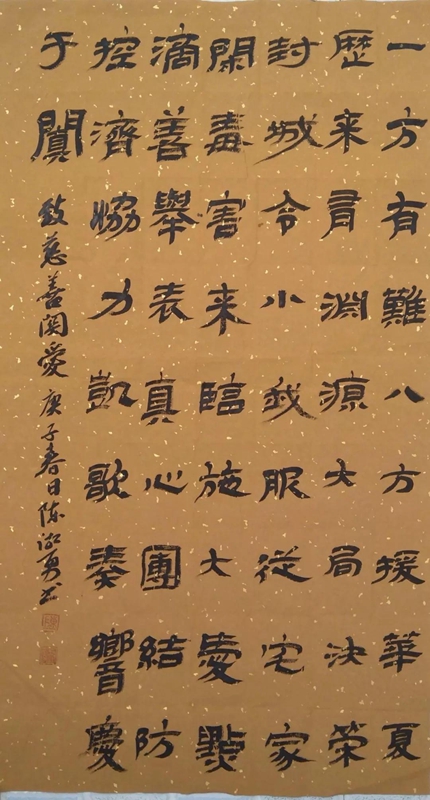 一方有難八方援華夏
歷来有淵源大局决荣
封城令小我服從宅家
閑毒害来臨施大愛點
滴善舉表真心團結防
控濟協力凱歌奏響慶
于闐
致慈善関愛 庚子春日陈勇书